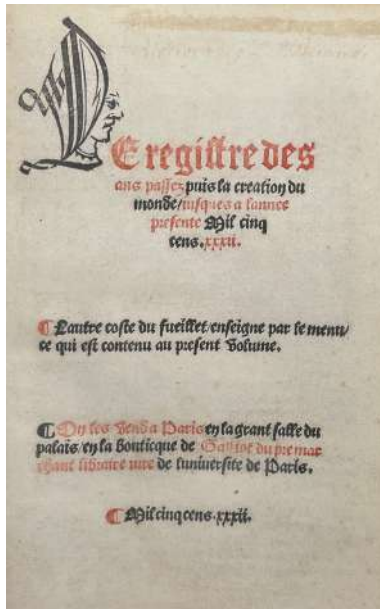 LE registre des
ans passez puis la creation du
monde/iusques a lannee
presente Mil cinq
cens.xxxii.
¶ Lautre coste du fueillet/enseigne par le menu/
ce qui est contenu au present Volume.
¶ On les vend a Paris en la grant salle du
palais/en la bouticque de Galliot du pre mar
chant libraire iure de luniversite de Paris.
¶ Mil cinq cens.xxxii.